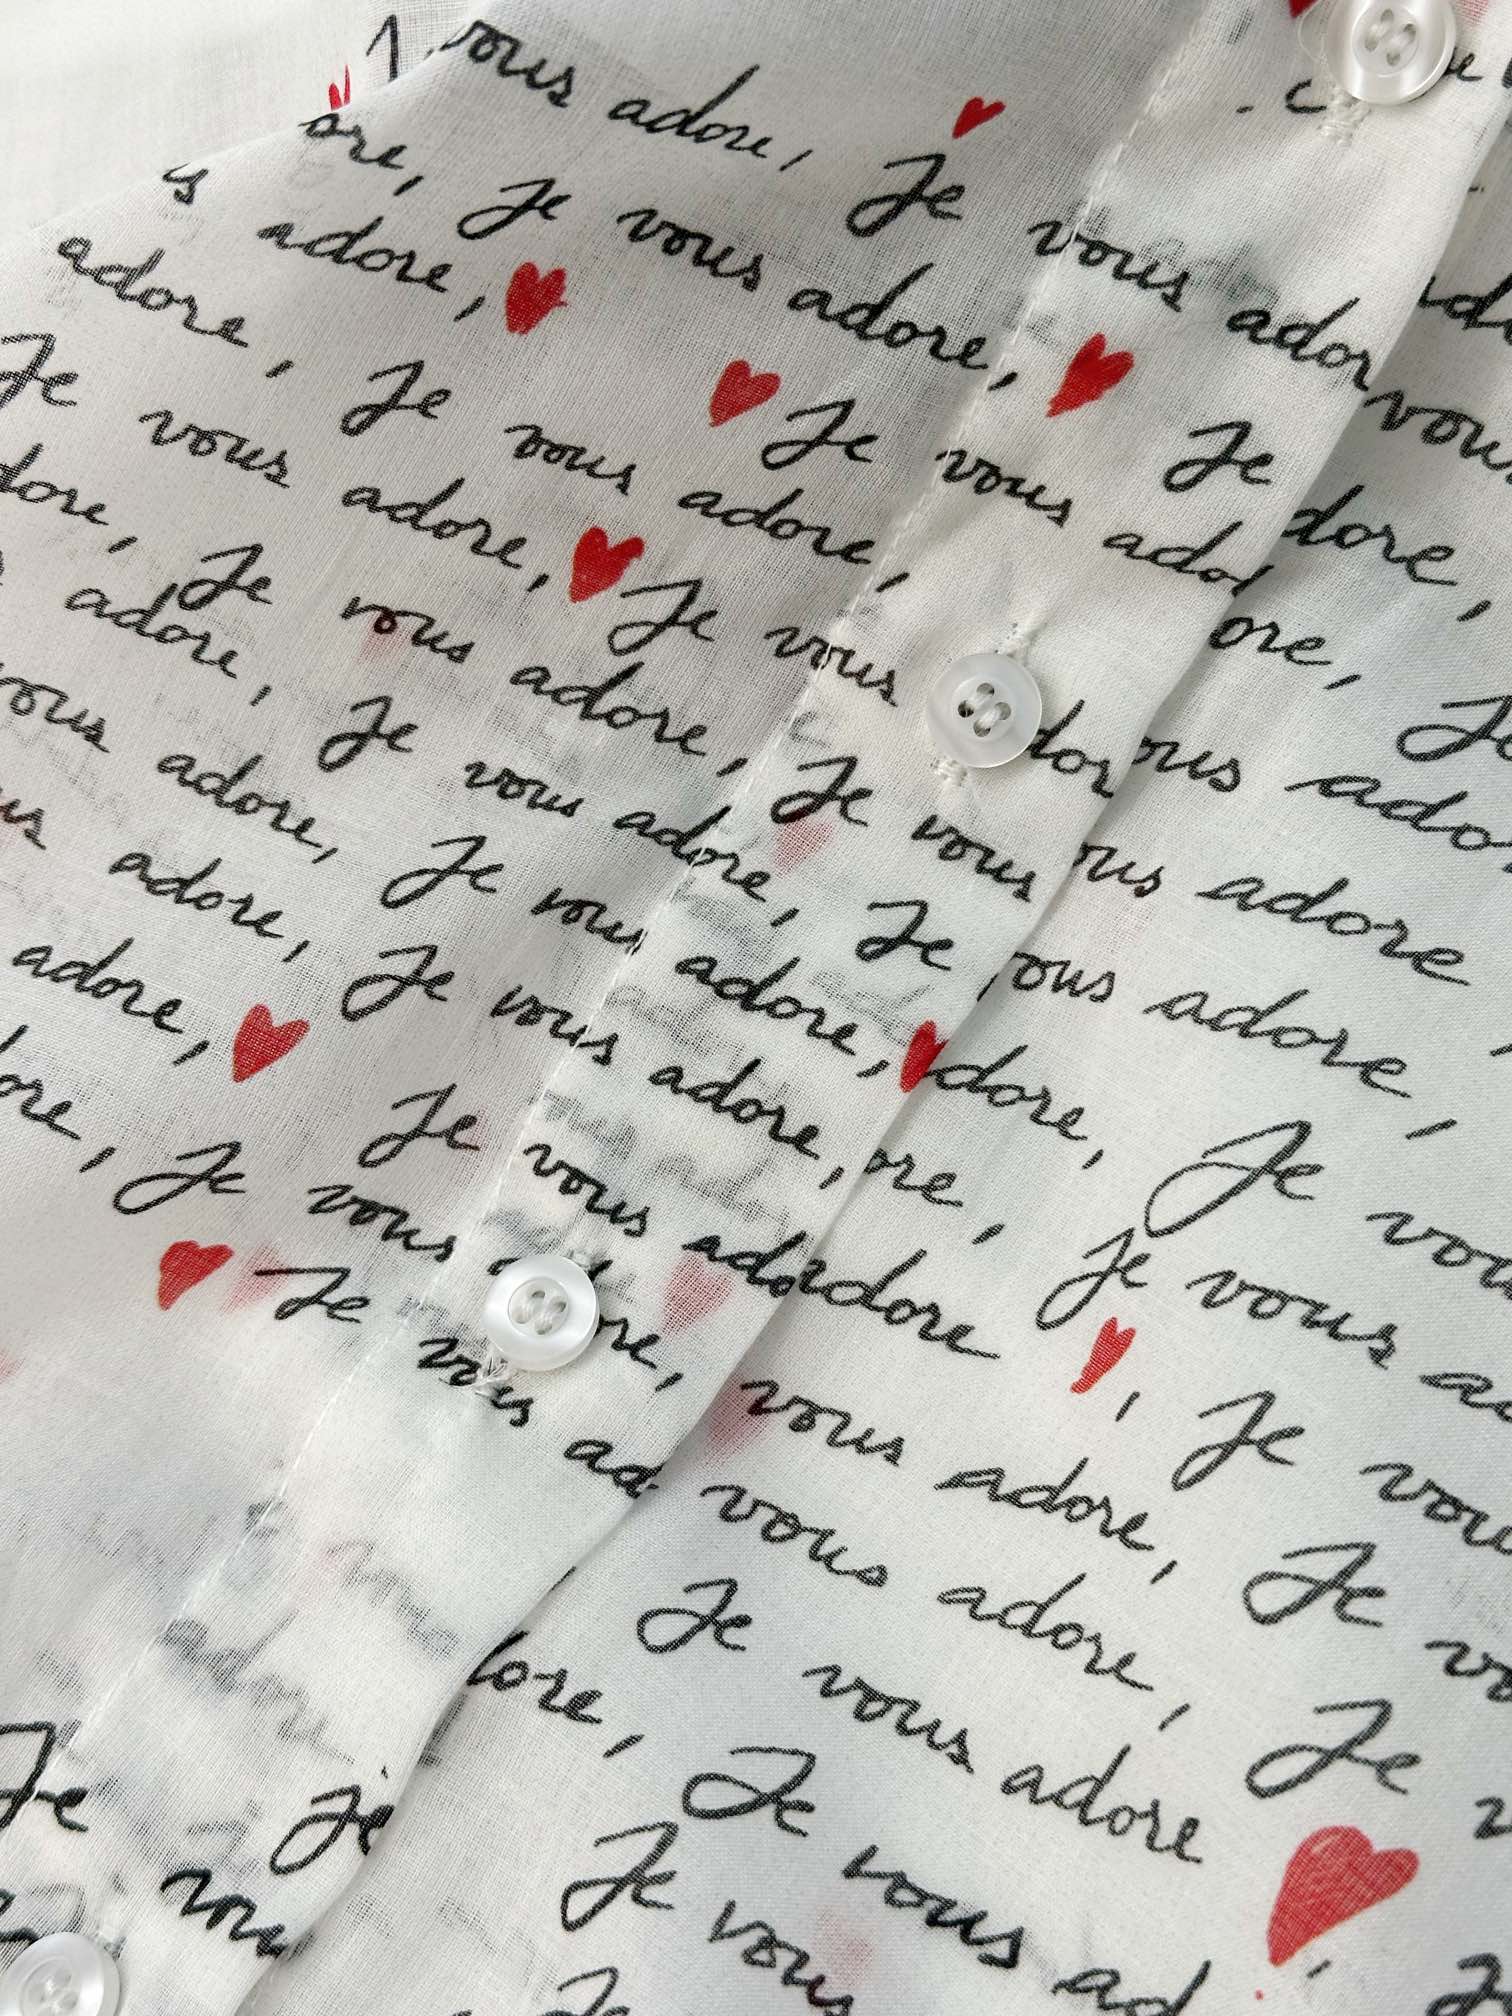 vous adore, Je vous ador
ore, Je vous adore, Je
adore, Je vous
adore, Je vous adore,
Je vous adore, Je vous
adore, Je vous adore, Je vous
adore, Je vous adore, Je
vous adore, Je vous adore,
adore, Je vous adore,
adore, Je vous
Je vous adore,
Je vous
vous
adore,
adore
vous adore
vous adore,
adore, Je vous
Je vous
adore
vous adore, Je vous
vous adore, Je
Je vous adore, Je
Je vous adore
Je vous
Je
Je